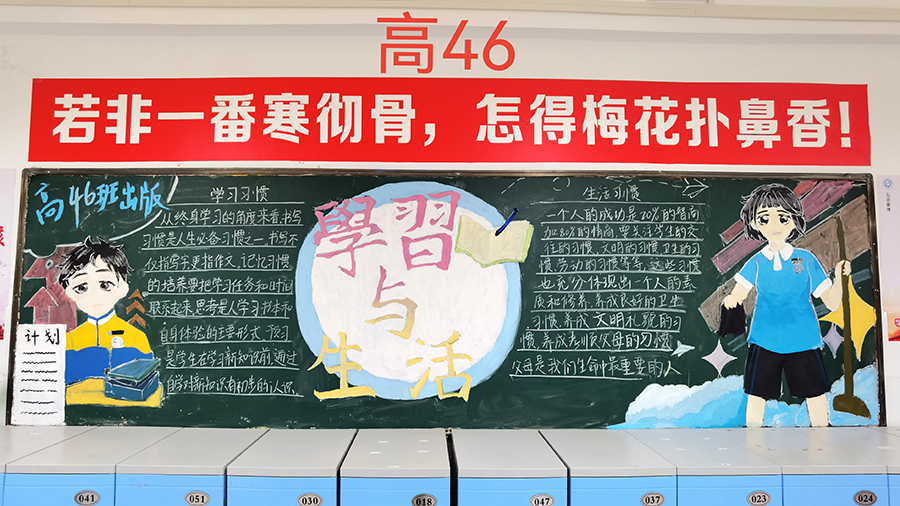 高46
若非一番寒彻骨，怎得梅花扑鼻香！
高46班出版
学习习惯
从终身学习的角度来看,书写
习惯是人生必备习惯之一,书写不
仅指写字更指作文,记忆习惯
的培养要把学习任务和时间
联系起来,思考是人学习书本和
自身体验的主要形式,预习
是学生在学习新知识前,通过
自学对新知识有初步的认识。
計划
學習
与
生活
生活习惯
一个人的成功是20%的智商
加80%的情商,要关注学生的交
往的习惯、文明的习惯、卫生的习
惯,劳动的习惯等等,这些习惯
也充分体现出一个人的素
质和修养,养成良好的卫生
习惯,养成文明礼貌的习
惯,养成孝顺父母的习惯
父母是我们生命中最重要的人
041
051
030
018
047
037
023
024